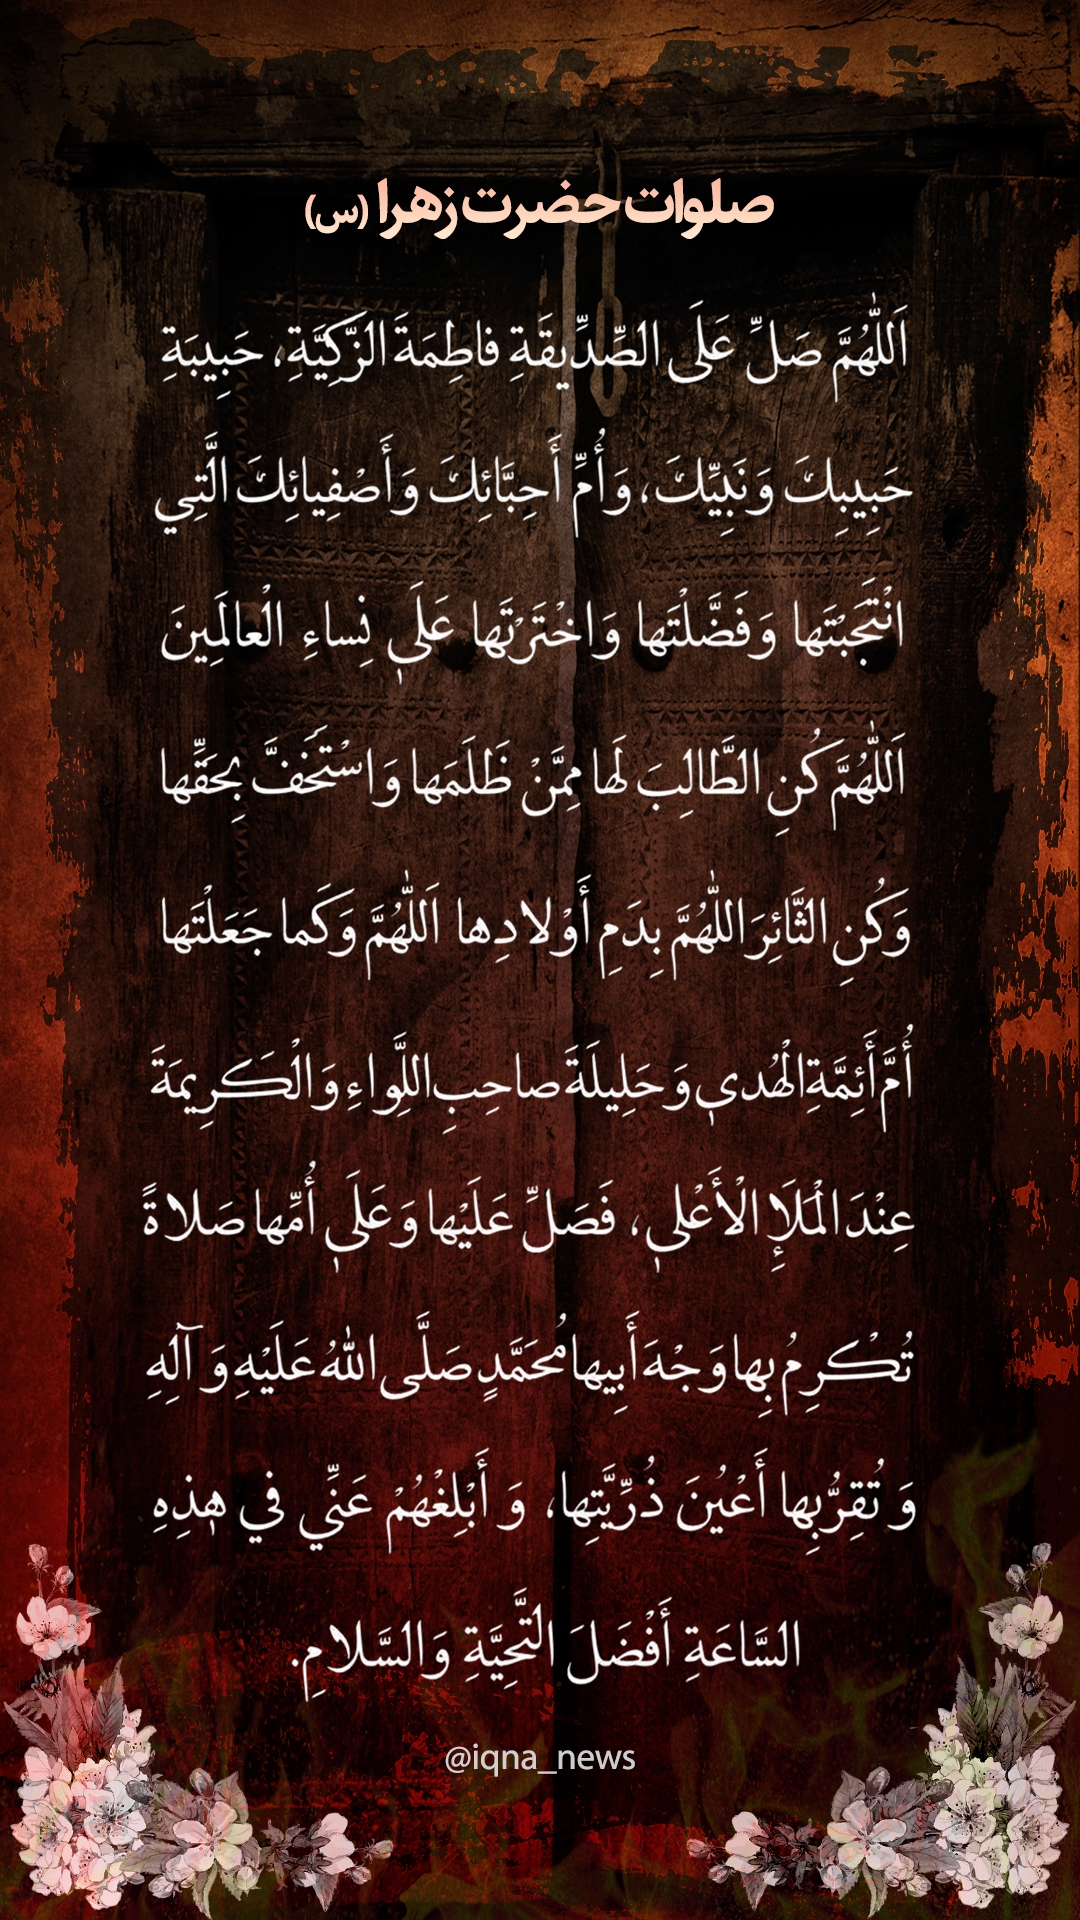 صلوات حضرت زهرا (س)
اَللّٰهُمَّ صَلِّ عَلَى الصِّدِّيقَةِ فاطِمَةَ الزَّكِيَّةِ، حَبِيبَةِ
حَبِيبِكَ وَ نَبِيِّكَ، وَ أُمِّ أَحِبَّائِكَ وَ أَصْفِيائِكَ الَّتِي
انْتَجَبْتَها وَ فَضَّلْتَها وَ اخْتَرْتَها عَلَىٰ نِساءِ الْعالَمِينَ
اَللّٰهُمَّ كُنِ الطَّالِبَ لَها مِمَّنْ ظَلَمَها وَ اسْتَخَفَّ بِحَقِّها
وَ كُنِ الثَّائِرَ اللّٰهُمَّ بِدَمِ أَوْلادِها اَللّٰهُمَّ وَ كَما جَعَلْتَها
أُمَّ أَئِمَّةِ الْهُدىٰ وَ حَلِيلَةَ صاحِبِ اللِّواءِ وَ الْكَرِيمَةَ
عِنْدَ الْمَلَإِ الْأَعْلىٰ، فَصَلِّ عَلَيْها وَ عَلَىٰ أُمِّها صَلاةً
تُكْرِمُ بِها وَجْهَ أَبِيها مُحَمَّدٍ صَلَّى اللهُ عَلَيْهِ وَ آلِهِ
وَ تُقِرُّ بِها أَعْيُنَ ذُرِّيَّتِها، وَ أَبْلِغْهُمْ عَنِّي فِي هٰذِهِ
السَّاعَةِ أَفْضَلَ التَّحِيَّةِ وَ السَّلامِ.
@iqna_news